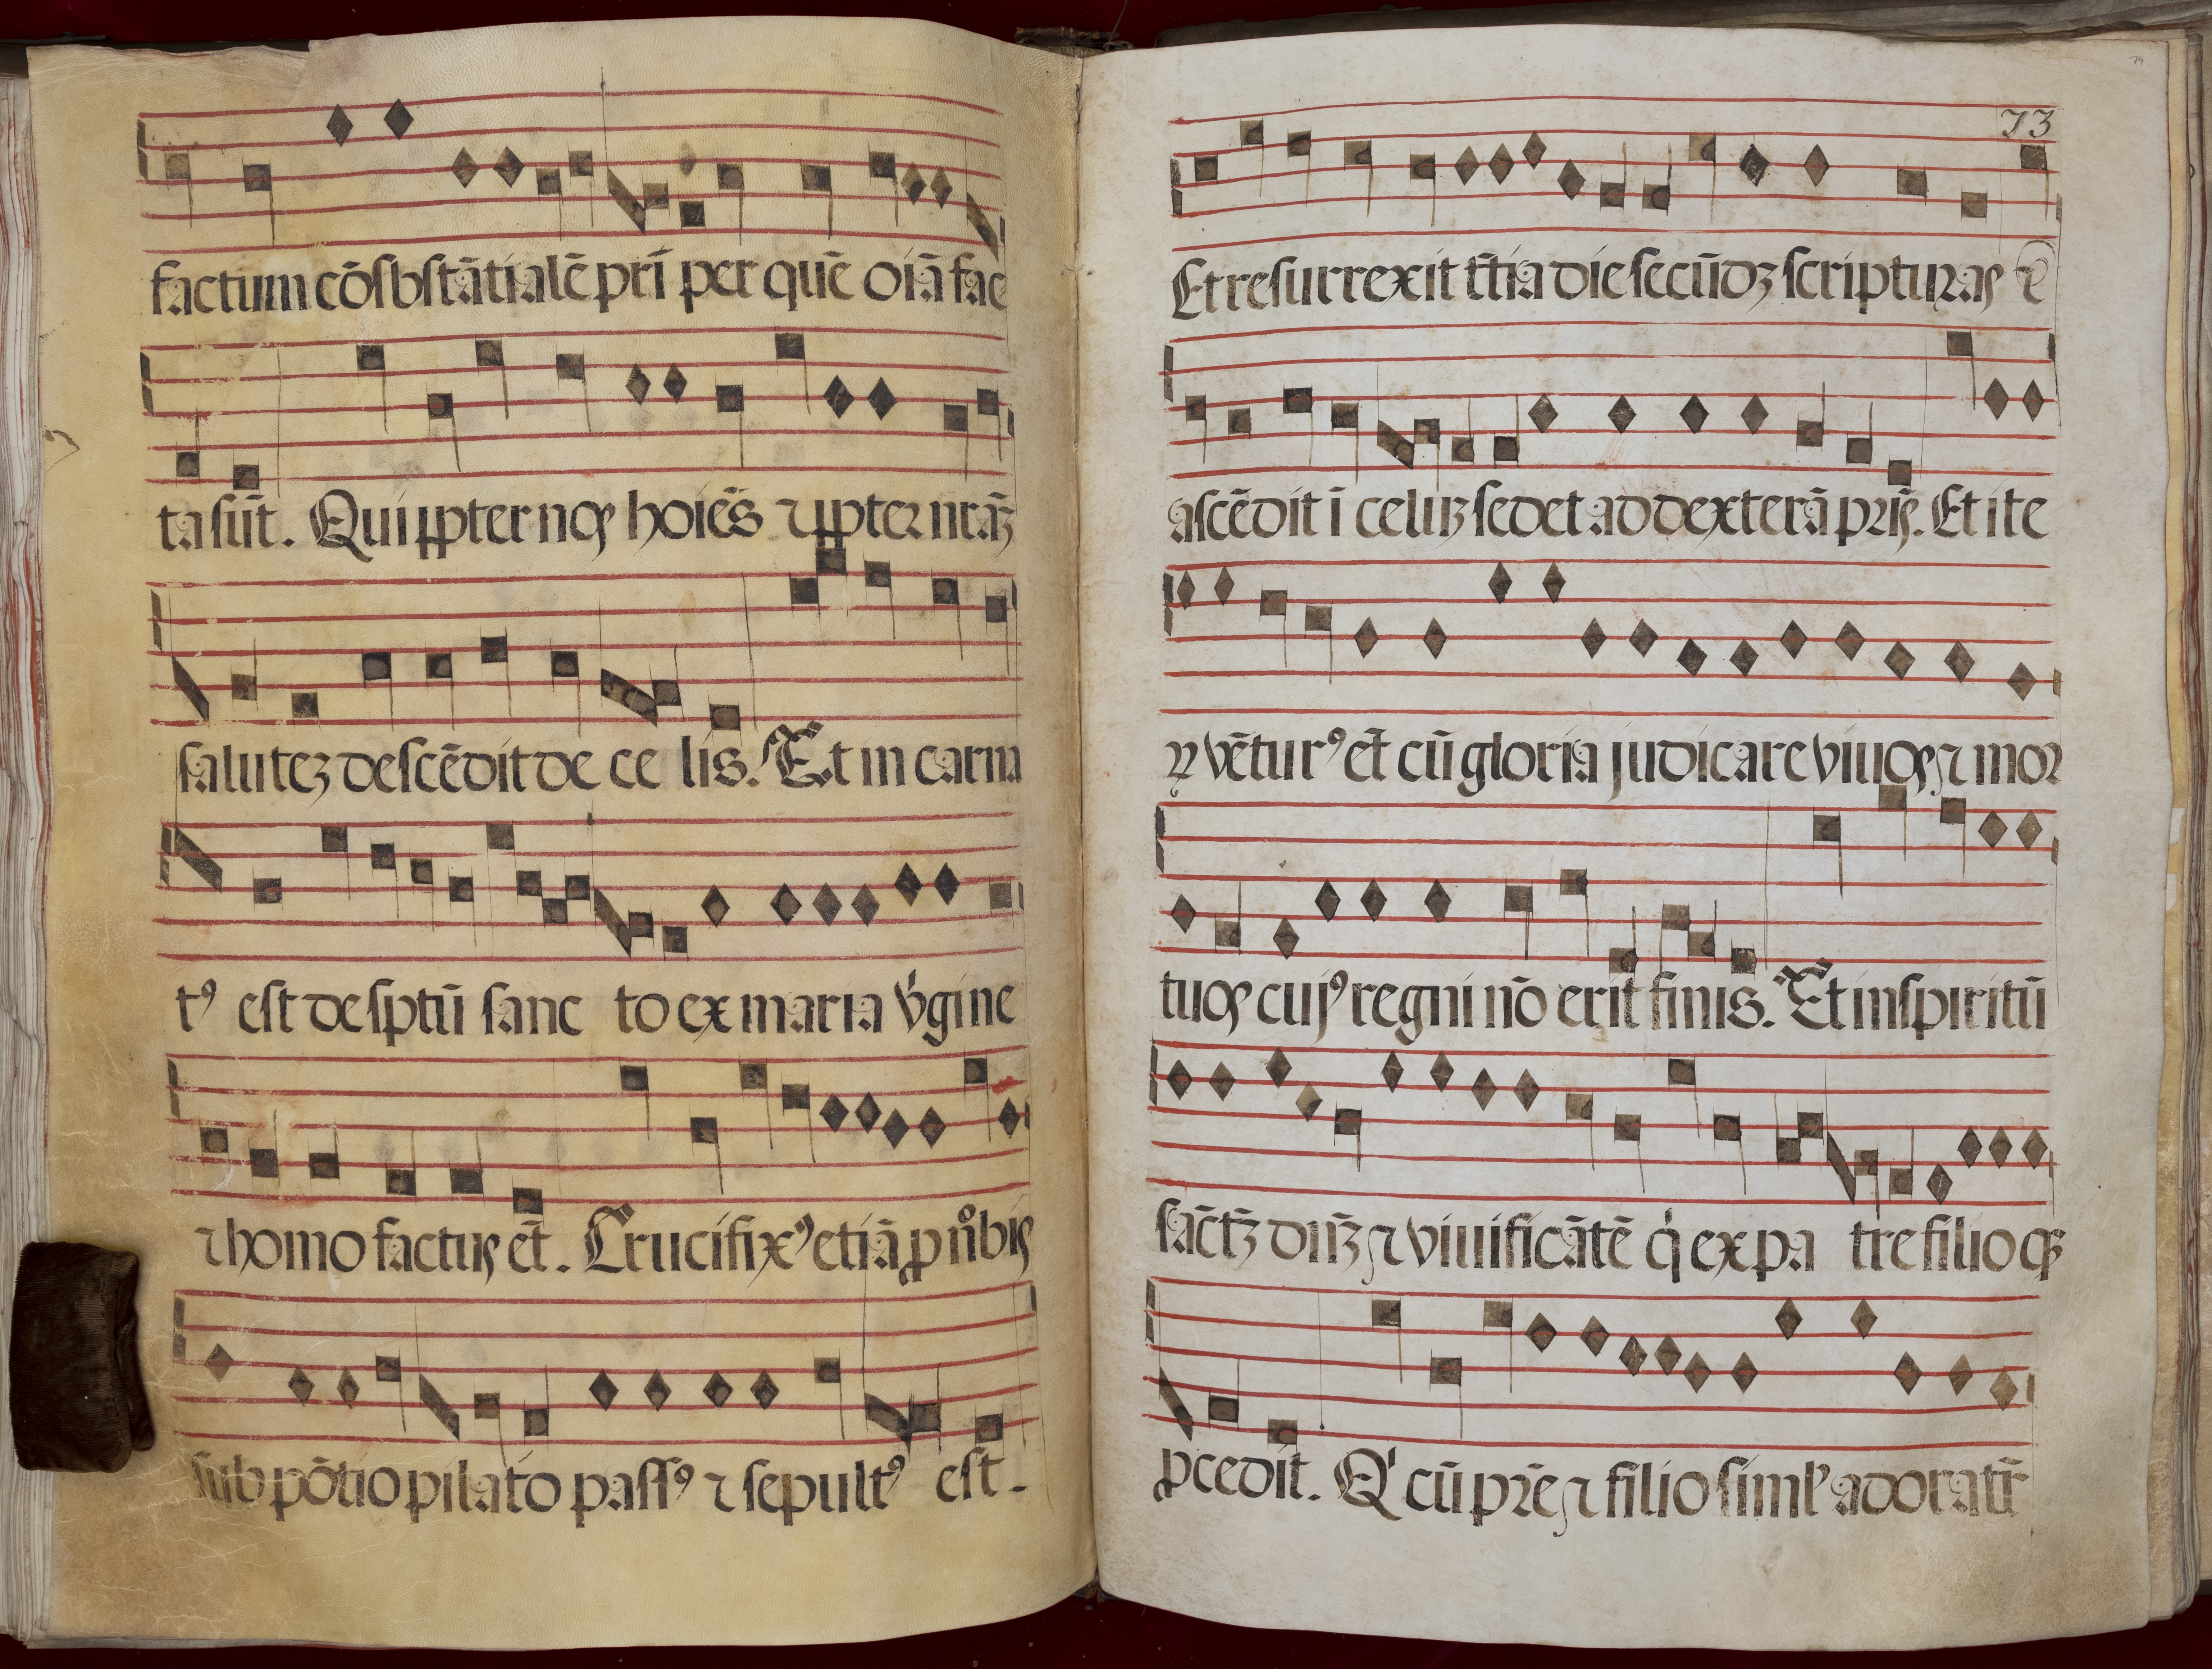 factum cōsbstātialē pr̄i per quē oīa fac
ta sūt. Qui ꝓpter nos hoies̄ ⁊ ꝓpter nr̄aꝫ
saluteꝫ descēdit de ce lis. Et in carna
tꝰ est de sp̄tū sanc to ex maria v̓gine
⁊ homo factus ēt. Crucifixꝰ etiā ꝓ nōbis
sub pōtio pilato passꝰ ⁊ sepultꝰ est.
73
Et resurrexit tt̄ia die secūdꝫ scripturas ⁊
ascēdit ī celuꝫ sedet ad dexterā pr̄is. Et ite
ꝝ vētur⁹ ēt cū gloria judicare viuos ⁊ mor
tuos cuj⁹ regni nō erit finis. Et in spiritū
sāctꝫ dn̄ꝫ ⁊ viuificātē q̇ ex pa tre filioqꝫ
ꝓcedit. Q' cū pr̄e ⁊ filio siml' adoratr̄